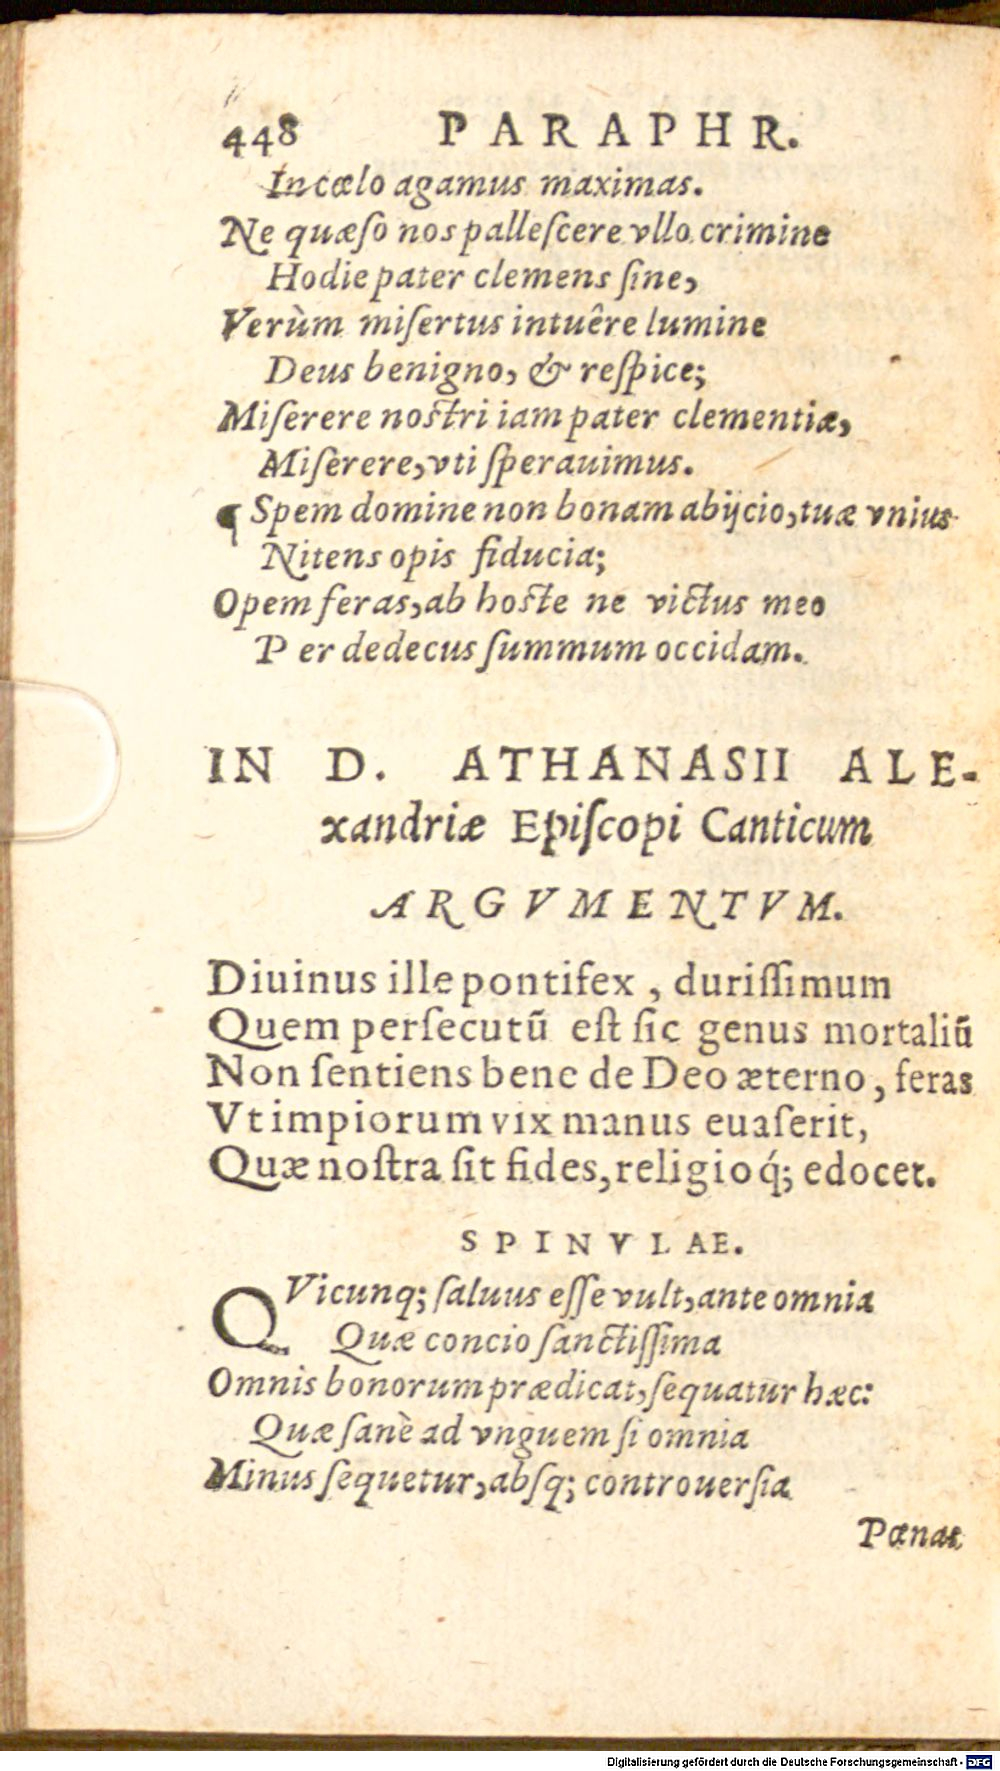 448 PARAPHR.
In cœlo agamus maximas.
Ne quæſo nos palleſcere vllo crimine
Hodie pater clemens ſine,
Verùm miſertus intuêre lumine
Deus benigno, & reſpice;
Miſerere noſtri iam pater clementiæ,
Miſerere, vti ſperauimus.
¶ Spem domine non bonam abijcio, tuæ vnius
Nitens opis fiducia;
Opem feras, ab hoſte ne victus meo
Per dedecus ſummum occidam.
IN D. ATHANASII ALE-
xandriæ Epiſcopi Canticum
ARGVMENTVM.
Diuinus ille pontifex, duriſſimum
Quem perſecutū eſt ſic genus mortaliū
Non ſentiens bene de Deo æterno, feras
Vt impiorum vix manus euaſerit,
Quæ noſtra ſit fides, religioq́; edocet.
SPINVLAE.
QVicunq; ſaluus eſſe vult, ante omnia
Quæ concio ſanctiſſima
Omnis bonorum prædicat, ſequatur hæc:
Quæ ſanè ad vnguem ſi omnia
Minus ſequetur, abſq; controuerſia
Pœnas
Digitalisierung gefördert durch die Deutsche Forschungsgemeinschaft - DFG